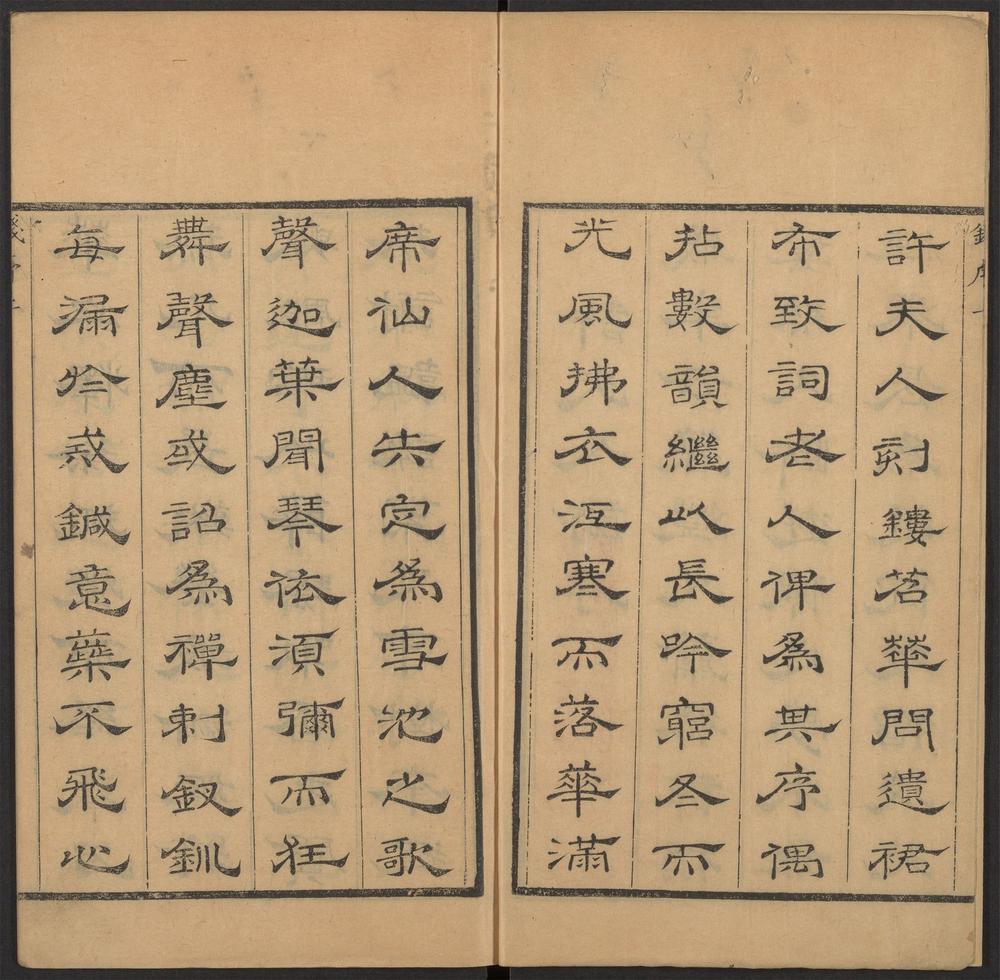 許夫人刻鏤苕華問遺裙
布致詞老人俾爲其序偶
拈數韻繼以長吟窮冬而
光風拂衣沍寒而落華滿
席仙人失定爲雪池之歌
聲迦葉聞琴依須彌而狂
舞聲塵或詔爲禪刺釵釧
每漏於戒鍼意蘂不飛心